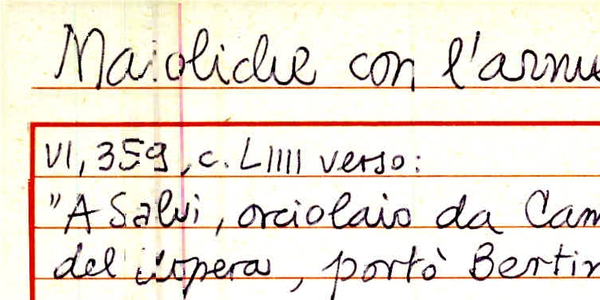 Maioliche con l'arnu
VI, 359, c. LIIII verso:
"A Salvi, orciolaio da Cam
del, portò Bertin